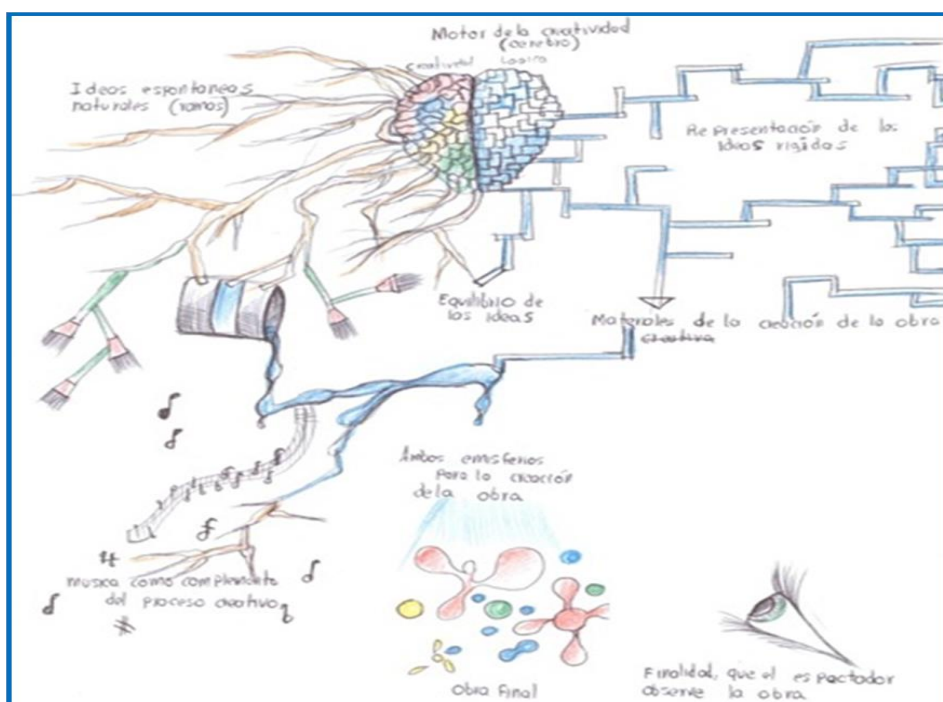 Motor de la creatividad
(cerebro)
creatividad Lógica
Ideas espontaneas
naturales (ramas)
Representación de las
ideas rigidas
Equilibrio de
las ideas
Materiales de la creación de la obra
creativa
Ambos emisferios
Para la creación
de la obra
musica como complemento
del proceso creativo
Obra Final
Finalidad, que el espectador
observe la obra